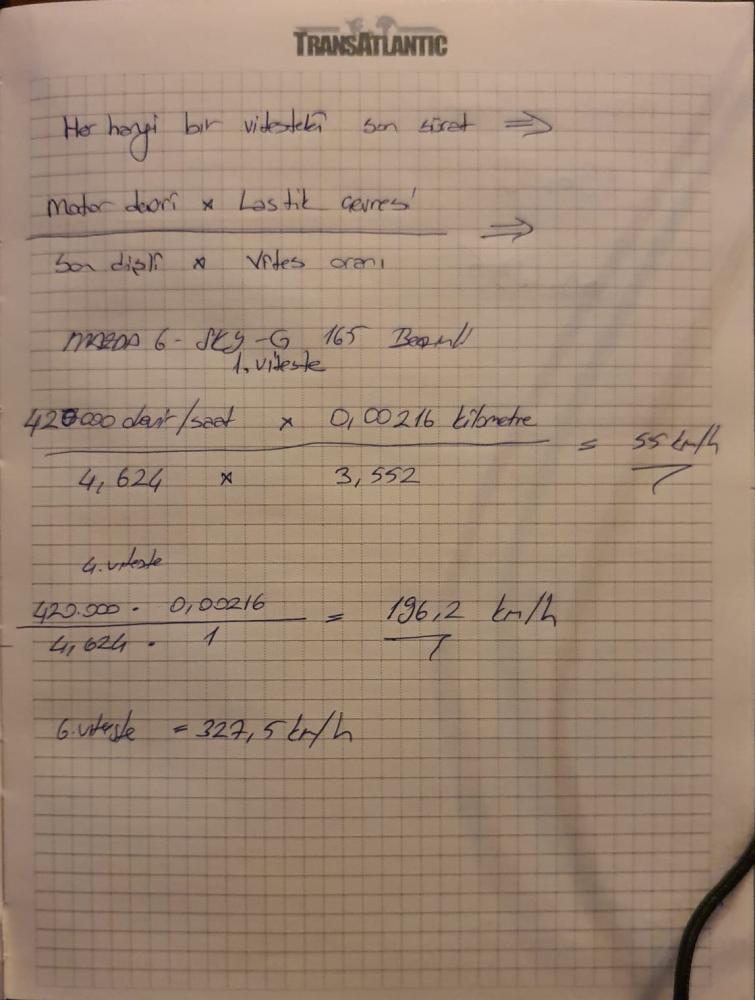 TRANSATLANTIC
Her hangi bir vitesteki son sürat ⇒
Motor devri x Lastik çevresi ⇒
Son dişli x Vites oranı
MAZDA 6 - SKY-G 165 Beygirli
1. viteste
420000 devir/saat x 0,00216 kilometre = 55 km/h
4,624 x 3,552
4. viteste
420.000 . 0,00216 = 196,2 km/h
4,624 . 1
6. viteste = 327,5 km/h